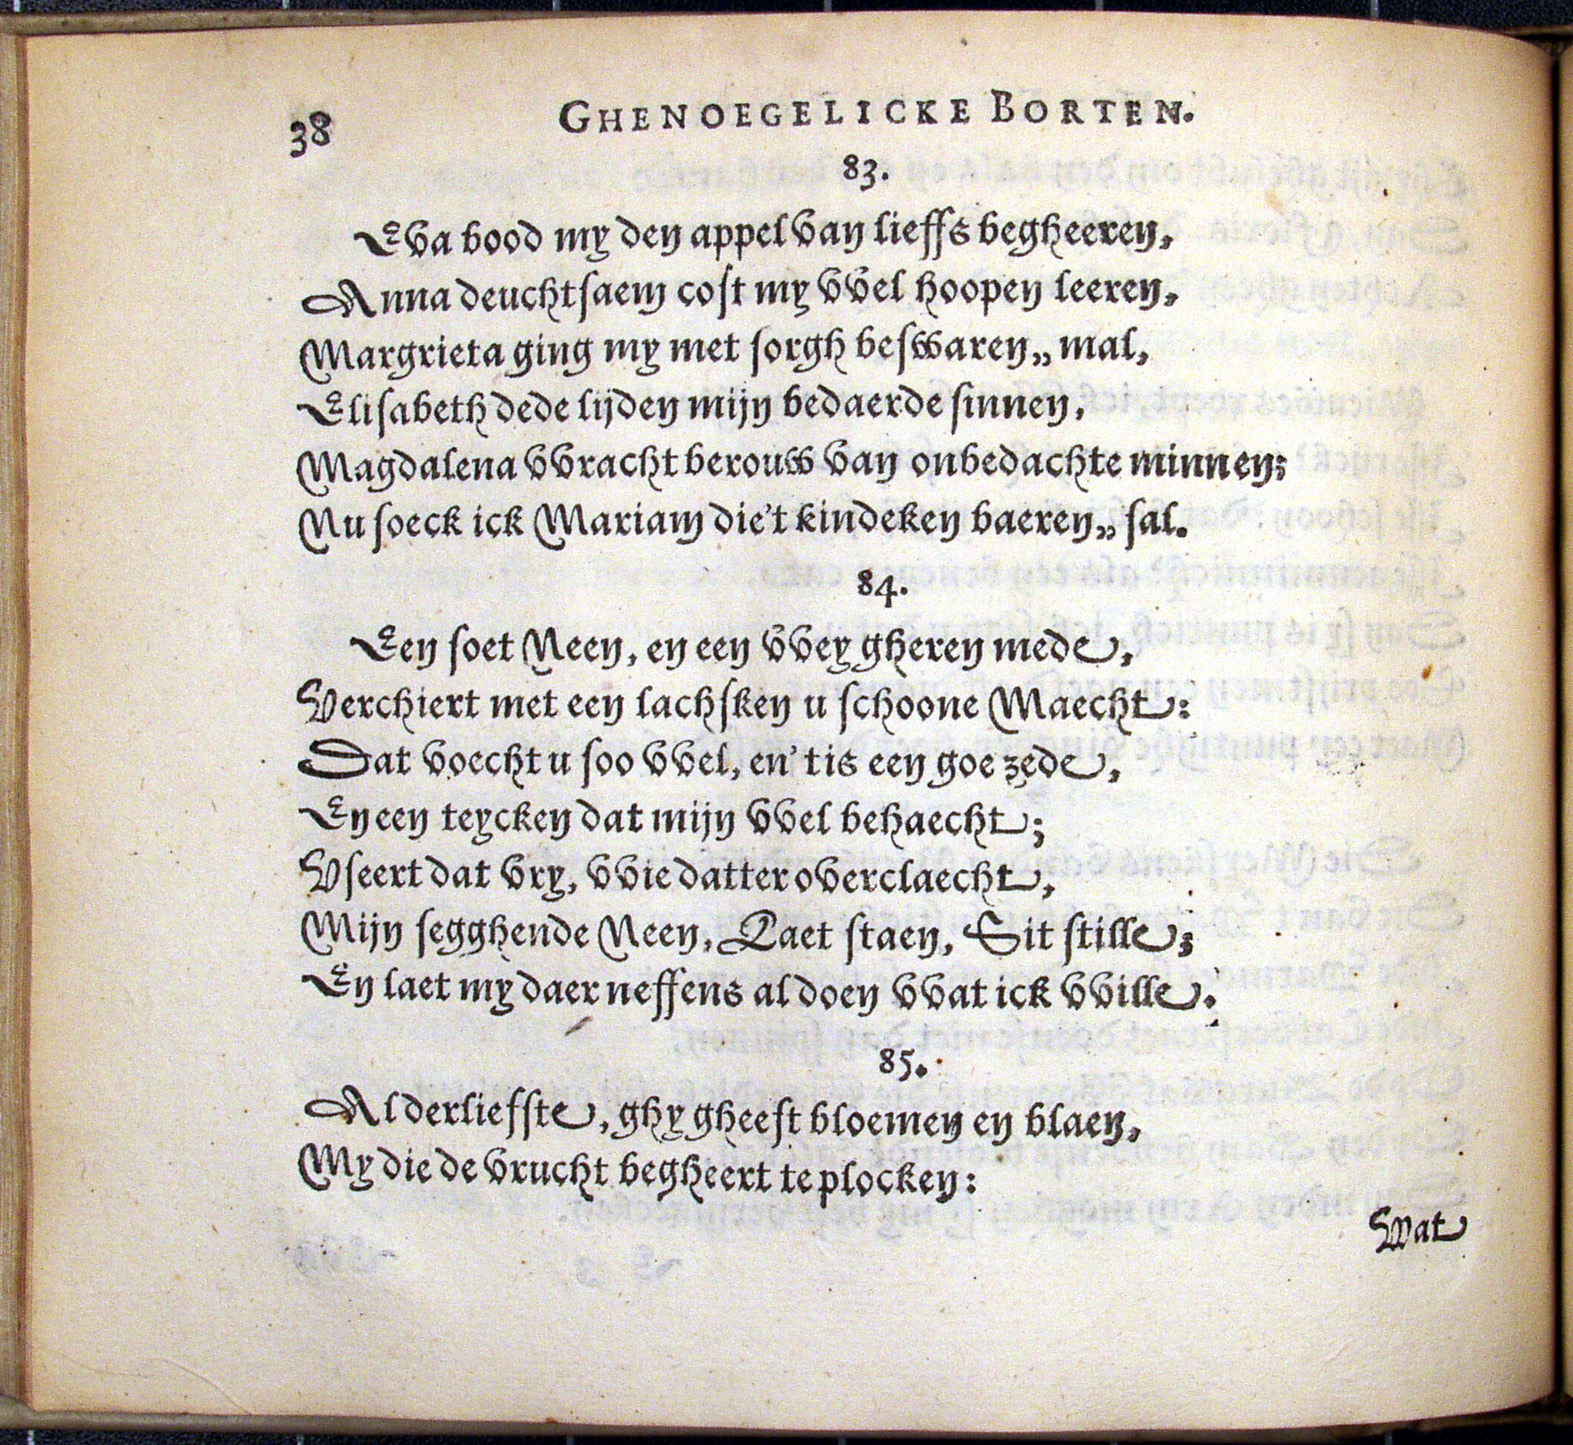 38 GHENOEGELICKE BORTEN.
83.
Eva bood my den appel van lieffs begheeren,
Anna deuchtsaem cost my vvel hoopen leeren,
Margrieta ging my met sorgh beswaren„ mal,
Elisabeth dede lijden mijn bedaerde sinnen,
Magdalena vvracht berouw van onbedachte minnen;
Nu soeck ick Mariam die't kindeken baeren„ sal.
84.
Een soet Neen, en een vveygheren mede,
Verchiert met een lachsken u schoone Maecht:
Dat voecht u soo vvel, en'tis een goe zede,
En een teycken dat mijn vvel behaecht;
Vseert dat vry, vvie datter overclaecht,
Mijn segghende Neen, Laet staen, Sit stille;
En laet my daer neffens al doen vvat ick vville.
85.
Alderliefste, ghy gheeft bloemen en blaen,
My die de vrucht begheert te plocken:
Wat